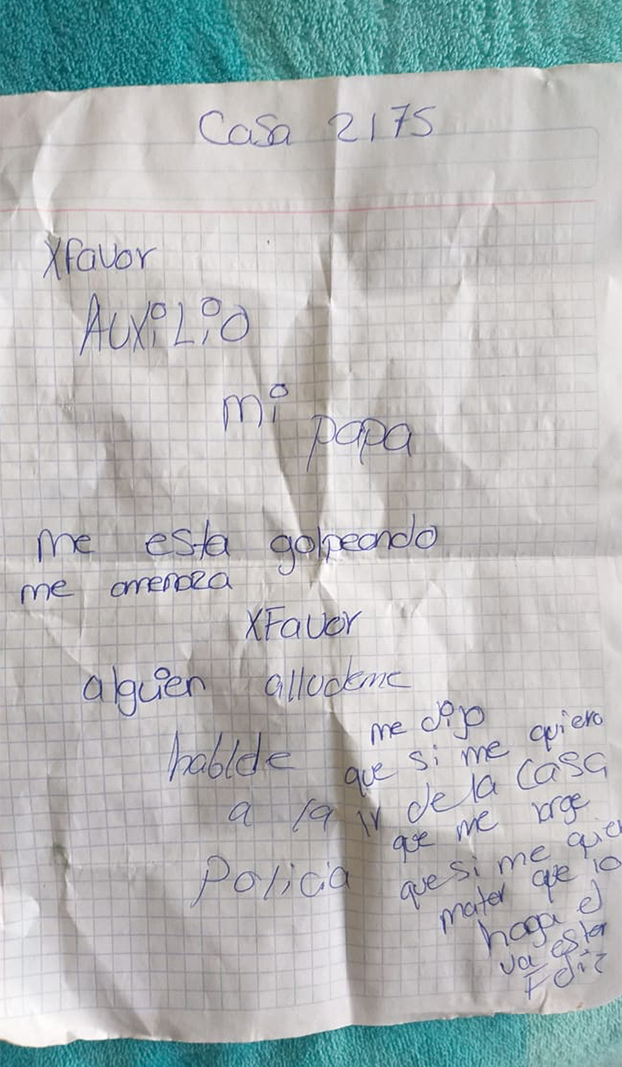 Casa 2175
Xfavor
AUXiLiO
mi papa
me esta golpeando
me amenaza
XFavor
alguien alludeme
hablde
a la
Policia
me dijo
que si me quiero
ir de la casa
que me large
que si me quier
mater que lo
haga el
va ester
Feliz